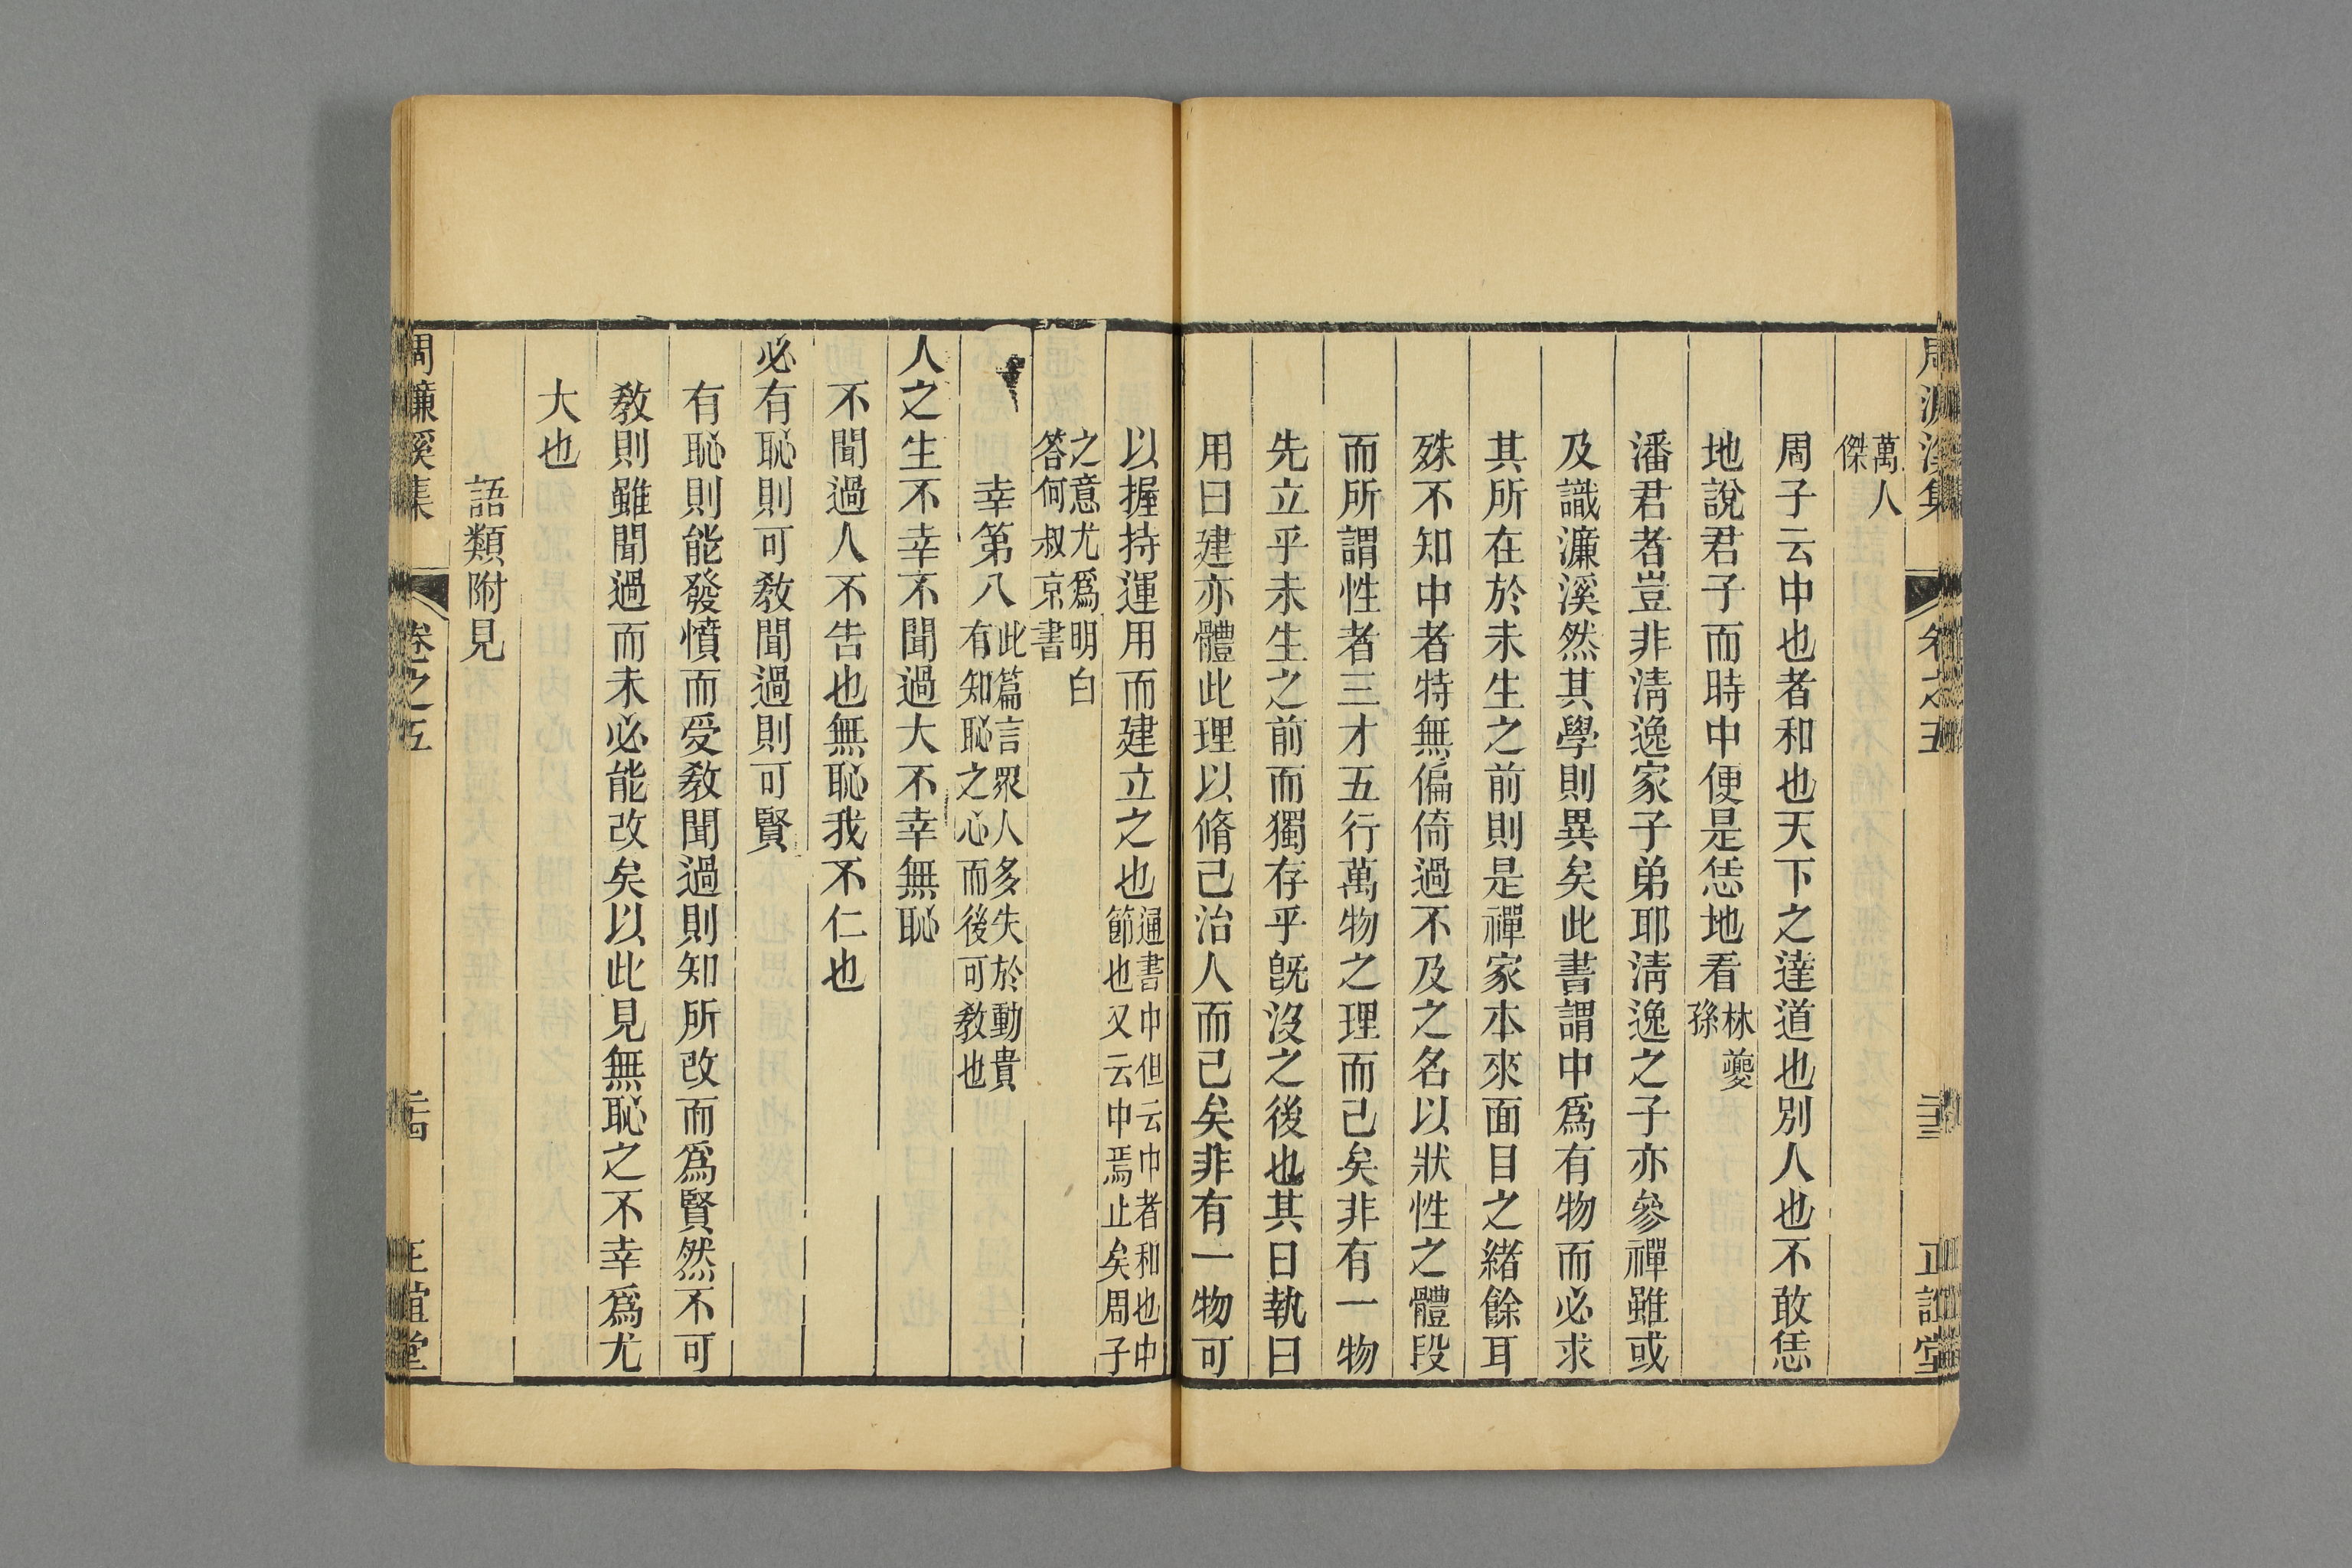 周濂溪集 卷之五 二十三 正誼堂
萬人傑
周子云中也者和也天下之達道也別人也不敢恁
地說君子而時中便是恁地看林夔孫
潘君者豈非淸逸家子弟耶淸逸之子亦參禪雖或
及識濂溪然其學則異矣此書謂中爲有物而必求
其所在於未生之前則是禪家本來面目之緒餘耳
殊不知中者特無偏倚過不及之名以狀性之體段
而所謂性者三才五行萬物之理而已矣非有一物
先立乎未生之前而獨存乎旣沒之後也其曰執曰
用曰建亦體此理以脩己治人而已矣非有一物可
以握持運用而建立之也通書中但云中者和也中
節也又云中焉止矣周子
之意尤爲明白
答何叔京書
幸第八此篇言眾人多失於動貴
有知恥之心而後可敎也
人之生不幸不聞過大不幸無恥
不聞過人不告也無恥我不仁也
必有恥則可敎聞過則可賢
有恥則能發憤而受敎聞過則知所改而爲賢然不可
敎則雖聞過而未必能改矣以此見無恥之不幸爲尤
大也
語類附見
周濂溪集 卷之五 二十四 正誼堂